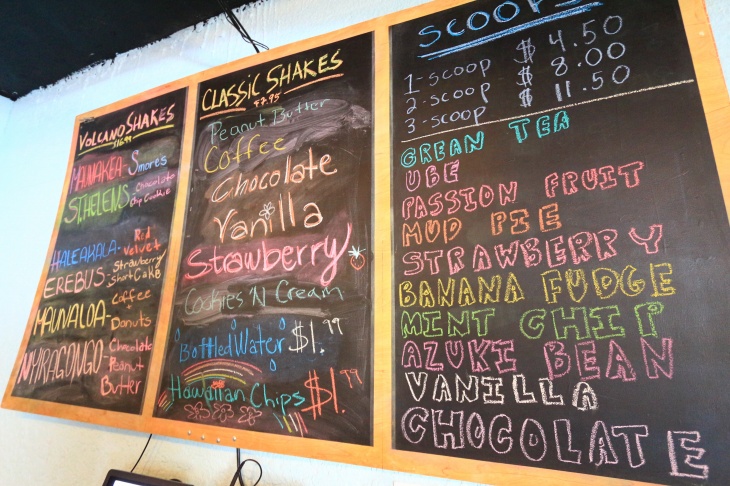 VOLCANO SHAKES
MAUNAKEA - Smores
ST. HELENS - Chocolate
Chip Cookie
HALEAKALA - Red
Velvet
EREBUS - Strawberry
Short Cake
MAUNALOA - Coffee
+
Donuts
NYIRAGONGO - Chocolate
Peanut
Butter
CLASSIC SHAKES
$7.95
Peanut Butter
Coffee
Chocolate
Vanilla
Strawberry
Cookies 'N Cream
Bottled Water $1.99
Hawaiian Chips $1.99
SCOOPS
1-scoop $4.50
2-scoop $8.00
3-scoop $11.50
GREAN TEA
UBE
PASSION FRUIT
MUD PIE
STRAWBERRY
BANANA FUDGE
MINT CHIP
AZUKI BEAN
VANILLA
CHOCOLATE